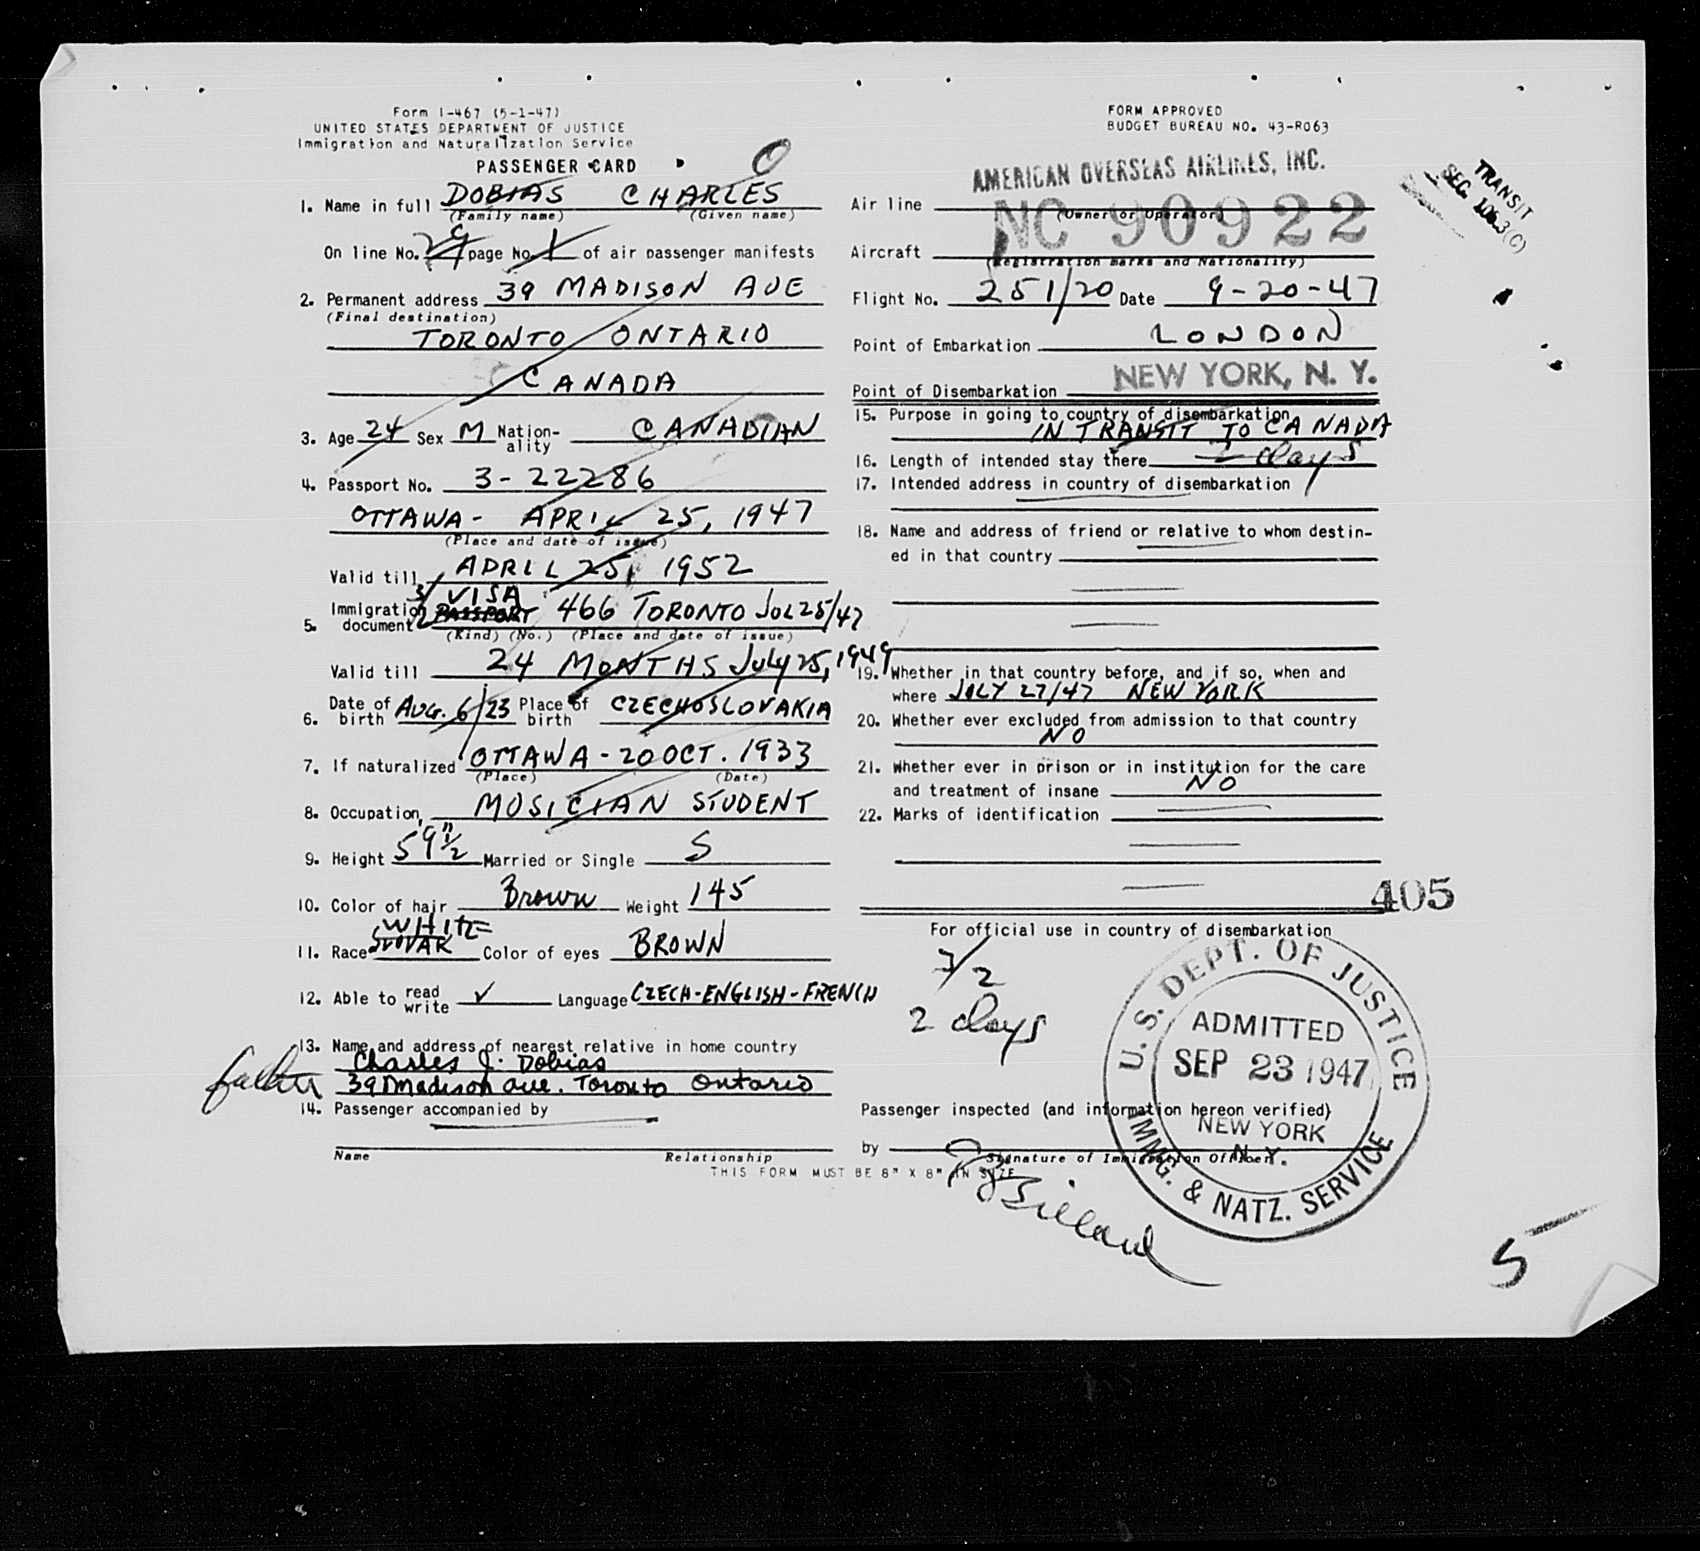 Form I-467 (5-1-47)
UNITED STATES DEPARTMENT OF JUSTICE
Immigration and Naturalization Service
PASSENGER CARD
1. Name in full DOBIAS CHARLES
(Family name) (Given name)
On line No. 29 page No. 1 of air passenger manifests
2. Permanent address 39 MADISON AVE
(Final destination)
TORONTO ONTARIO
CANADA
3. Age 24 Sex M Nation-ality CANADIAN
4. Passport No. 3-22286
OTTAWA - APRIL 25, 1947
(Place and date of issue)
Valid till APRIL 25, 1952
VISA
5. Immigration document PASSPORT 466 TORONTO JUL 25/47
(Kind) (No.) (Place and date of issue)
Valid till 24 MONTHS July 25, 1949
6. Date of birth AUG. 6/23 Place of birth CZECHOSLOVAKIA
7. If naturalized OTTAWA - 20 OCT. 1933
(Place) (Date)
8. Occupation MUSICIAN STUDENT
9. Height 5 9 1/2" Married or Single S
10. Color of hair Brown Weight 145
WHITE
11. Race SLOVAK Color of eyes BROWN
12. Able to read write ✓ Language CZECH-ENGLISH-FRENCH
13. Name and address of nearest relative in home country
Charles J. Dobias
father 39 Madison ave. Toronto Ontario
14. Passenger accompanied by
Name Relationship
THIS FORM MUST BE 8" X 8" IN SIZE
FORM APPROVED
BUDGET BUREAU NO. 43-R063
AMERICAN OVERSEAS AIRLINES, INC.
Air line
(Owner or Operator)
NC 90922
Aircraft
(Registration marks and Nationality)
Flight No. 251/20 Date 9-20-47
Point of Embarkation LONDON
Point of Disembarkation NEW YORK, N. Y.
15. Purpose in going to country of disembarkation
IN TRANSIT TO CANADA
16. Length of intended stay there 2 days
17. Intended address in country of disembarkation
18. Name and address of friend or relative to whom destin-
ed in that country
19. Whether in that country before, and if so, when and
where JULY 27/47 NEW YORK
20. Whether ever excluded from admission to that country
NO
21. Whether ever in prison or in institution for the care
and treatment of insane NO
22. Marks of identification
405
For official use in country of disembarkation
3/2
2 days
U.S. DEPT. OF JUSTICE
ADMITTED
SEP 23 1947
NEW YORK
N.Y.
IMMIG. & NATZ. SERVICE
Passenger inspected (and information hereon verified)
by
Signature of Immigration Officer
TRANSIT
SEC. 106.3(C)
5